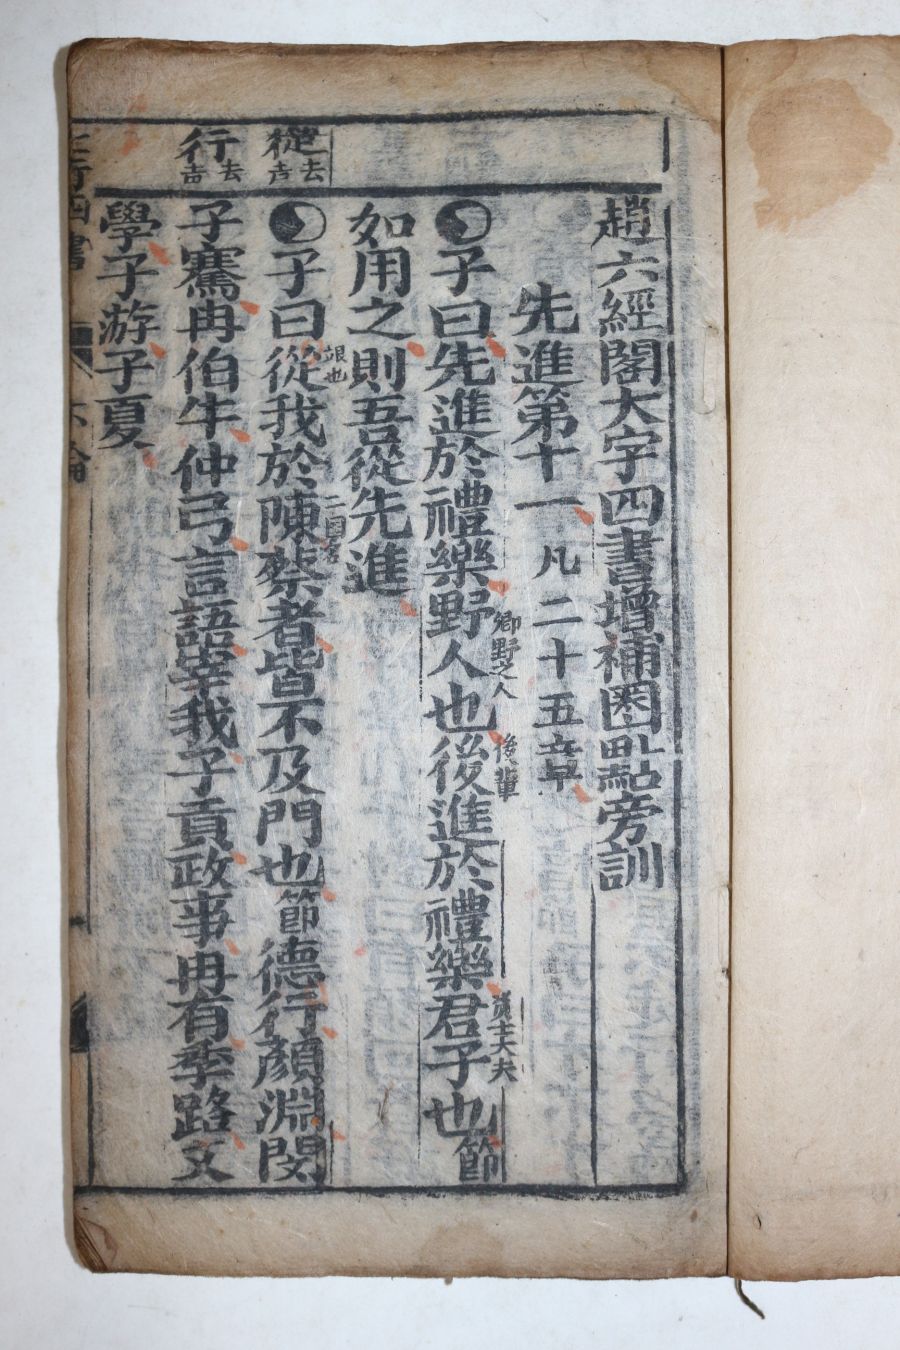 趙六經閣大字四書增補圈點旁訓
先進第十一 凡二十五章
子曰先進於禮樂野人也後進於禮樂君子也節
郷野之人
後輩
賢士大夫
如用之則吾從先進
子曰從我於陳蔡者皆不及門也節德行顏淵閔
從 去声
跟也
二國名
子騫冉伯牛仲弓言語宰我子貢政事冉有季路文
行 去声
學子游子夏
四書
下論